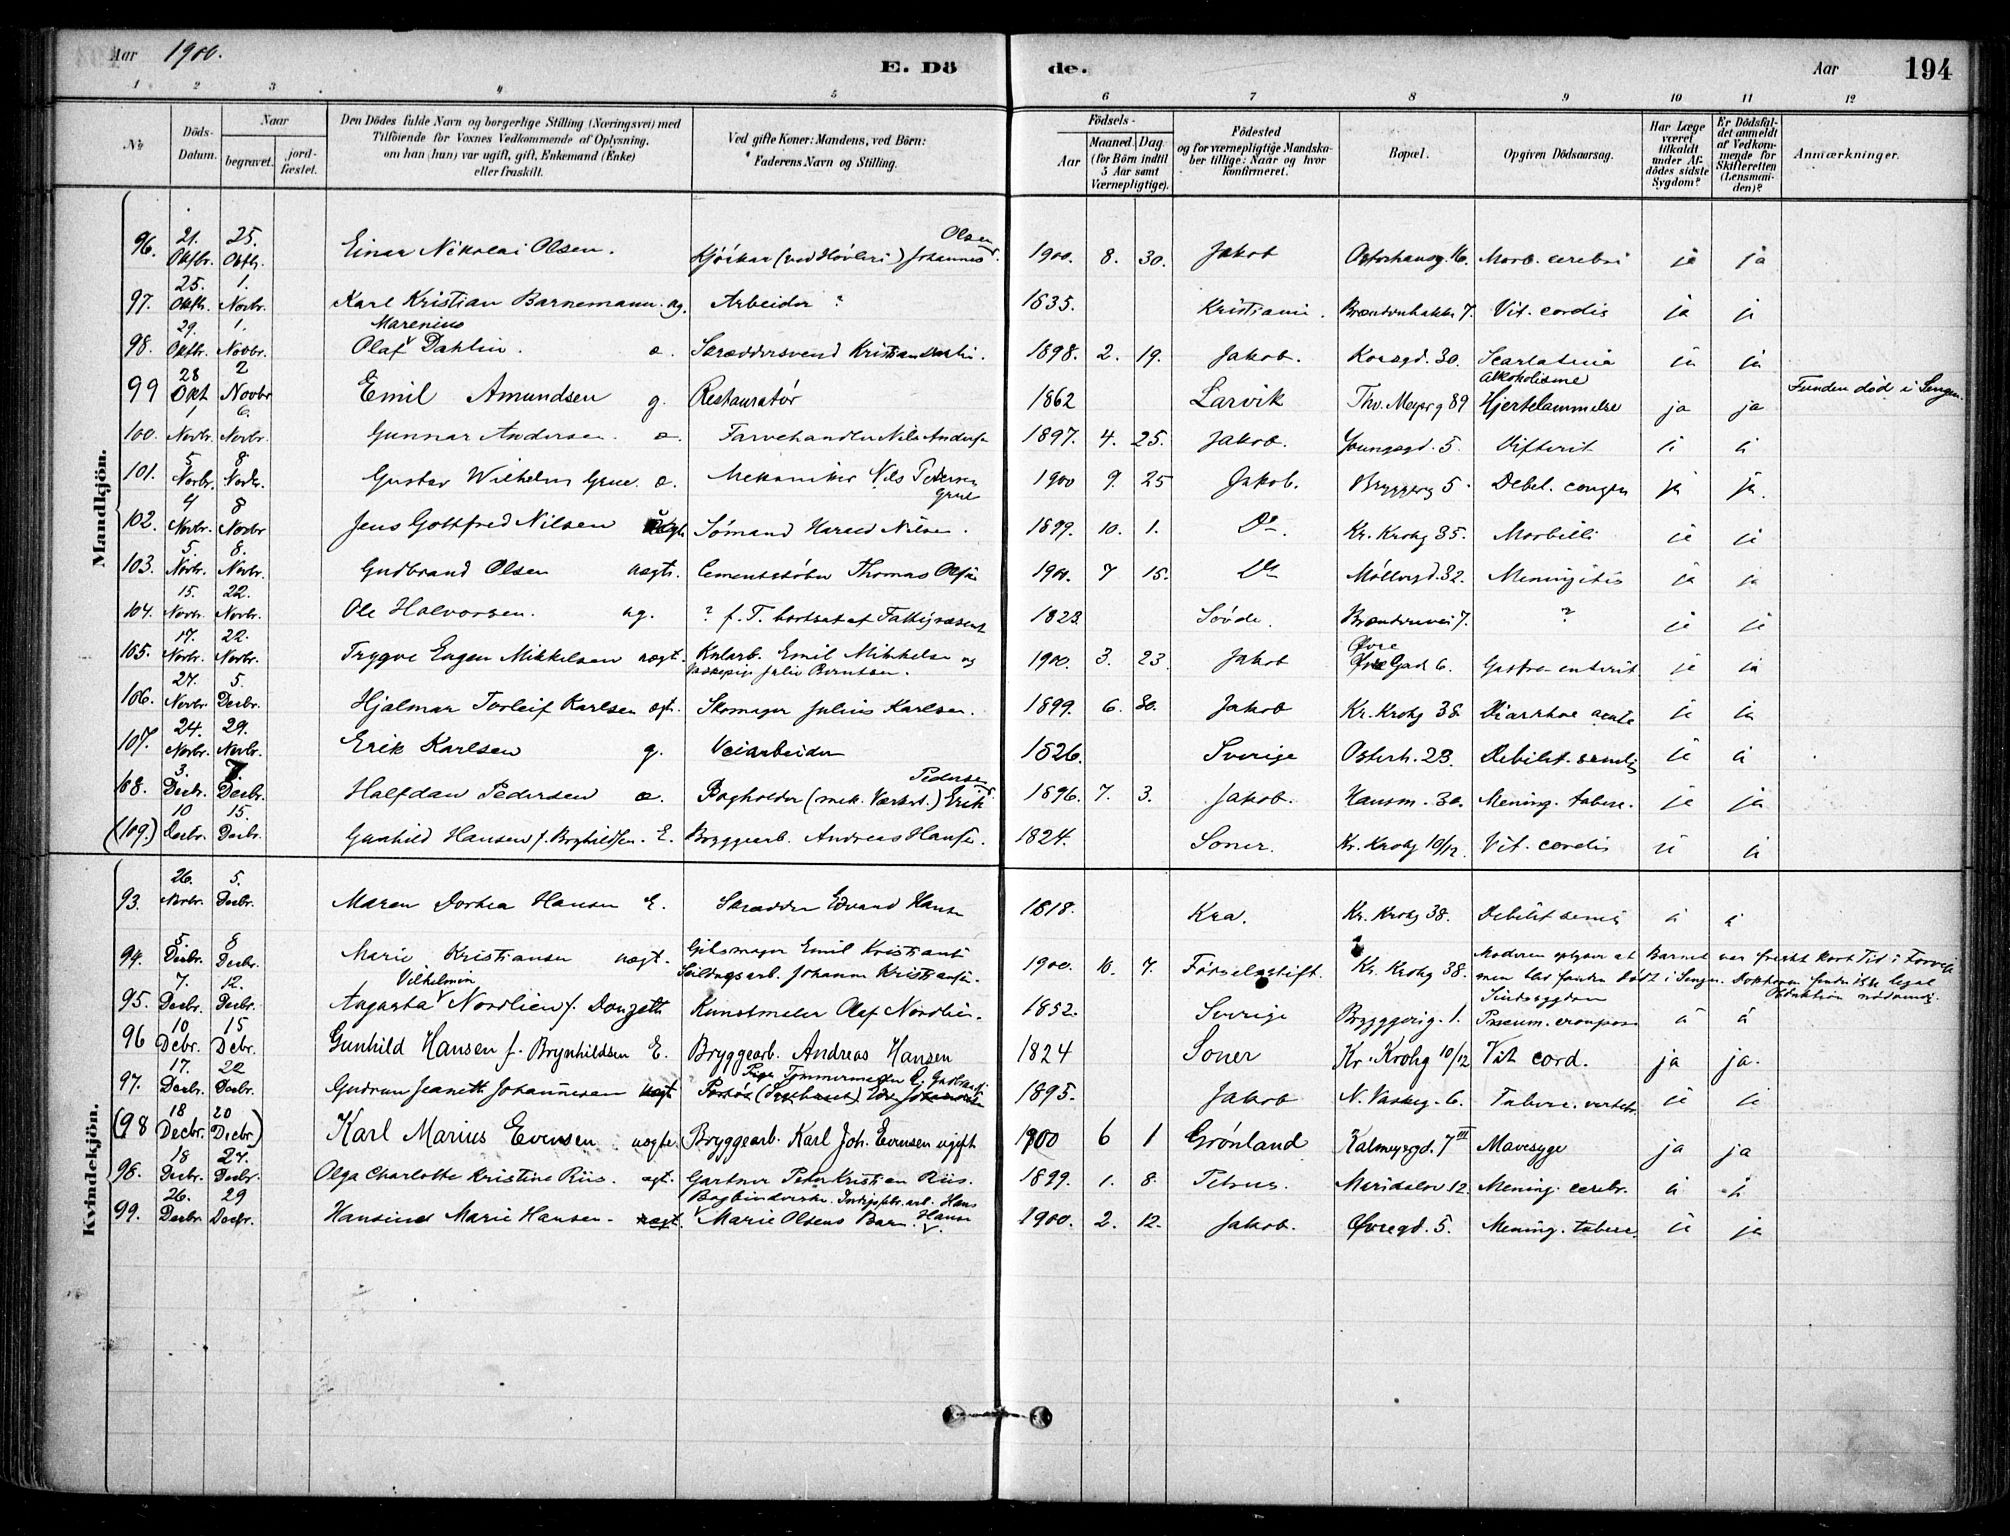 Aar 1900. E. Dö de. Aar 194
1 2 3 4 5 6 7 8 9 10 11 12
No
Döds-Datum.
Naar
begravet.
jord-fæstet.
Den Dödes fulde Navn og borgerlige Stilling (Næringsvei) med
Tilföiende for Voxnes Vedkommende af Oplysning,
om han (hun) var ugift, gift, Enkemand (Enke)
eller fraskilt.
Ved gifte Koner: Mandens, ved Börn:
Faderens Navn og Stilling.
Födsels-
Aar
Maaned. Dag.
(for Börn indtil
5 Aar samt
Værnepligtige).
Födested
og for værnepligtige Mandska-
ber tillige: Naar og hvor
konfirmeret.
Bopæl.
Opgiven Dödsaarsag.
Har Læge
været
tilkaldt
under Af-
dödes sidste
Sygdom?
Er Dödsfal-
det anmeldt
af Vedkom-
mende for
Skifteretten
(Lensman-
den)?
Anmærkninger.
Mandkjön.
96. 21. Oktbr. 25. Oktbr. Einar Nikolai Olsen. Johannes Olsen 1900. 8. 30. Jakob 16. Morb. cerebri ja ja
97. 25. Oktbr. 1. Novbr. Karl Kristian Barnemann. ug. Arbeider ? 1835. Kristiania. 7. Vit. cordis ja ja
98. 29. Oktbr. 1. Novbr. Olaf Marenius Dahlin. æ. Skræddersvend Kristian Dahlin. 1898. 2. 19. Jakob. Korsgd. 30. Scarlatina ja ja
99 28 Okt 2 Novbr Emil Amundsen g. Restauratør 1862 Larvik Thv. Meyerg 89 Alkoholisme Hjertelammelse ja ja Funden død i Sengen.
100. 1 Novbr. 6. Novbr. Gunnar Andersen. æ. Farvehandler Nils Andersen 1897. 4. 25. Jakob. Youngsgd. 5. Difterit ja ja
101. 5 Novbr. 8. Novbr. Gustav Wilhelm Grue. æ. Mekaniker Nils Pedersen Grue 1900 9. 25 Jakob. Bryggerg 5. Debil. congen ja ja.
102. 4 Novbr. 8 Novbr Jens Gottfred Nilsen Sømand Harald Nilsen. 1899. 10. 1. Do. Kr. Krohg 35. Morbilli ja ja
103. 5. Novbr. 8. Novbr. Gudbrand Olsen uægt. Cementstøber Thomas Olsen 1900. 7 15. Do Møllergd. 32. Meningitis ja ja
104. 15. Novbr. 22. Novbr. Ole Halvorsen. ug. ? f. T. bortsat af Fattigvæsenet 1823. Søvde. 7. ? ja ja
105. 17. Novbr. 22. Novbr. Trygve Eugen Mikkelsen uægt. Emil Mikkelsen og Julie Berntsen. 1900. 3. 23. Jakob Øvre Gad 6. Gastro-enterit ja ja
106. 27. Novbr. 5. Decbr. Hjalmar Torleif Karlsen ægt. Skomager Julius Karlsen. 1899. 6. 30. Jakob Kr. Krohg 38. Diarrhoe acuta ja ja
107. 24. Novbr. 29. Novbr. Erik Karlsen g. Veiarbeider 1826. Sverige Osterh. 23. Debilit. senilis ja ja
108. 3. Decbr. 7. Decbr. Halfdan Pedersen æ. Bogholder (mek. Værkst.) Erik Pedersen 1896. 7. 3. Jakob. Hausm. 30. Mening. tuberc. ja ja
(109.) 10 Decbr. 15. Decbr. Gunhild Hansen f. Brynhildsen. E. Bryggearb. Andreas Hansen. 1824. Soner. Kr. Krohg 10/12. Vit. cordis ja ja
Kvindekjön.
93. 26. Novbr. 5. Decbr. Maren Dortea Hansen E. Skrædder Edvard Hansen 1818. Kra. Kr. Krohg 38. Debilit senil ja ja
94. 5. Decbr. 8 Decbr. Marie Kristiansen uægt. Gibsmager Emil Kristiansen Johanne Kristiansen. 1900. 10. 7. Fødselsstift. Kr. Krohg 38. Moderen oplyser at Barnet var friskt kort Tid i Forveien men blev funden dødt i Sengen. Doktoren fandt ikke legal Obduktion nødvendig.
95. 7. Decbr. 12. Decbr. Augusta Vilhelmine Nordlien f. Kunstmaler Olaf Nordlien. 1852. Sverige Bryggerig. 1. Sindssygdom ja ja
96 10 Debr. 15 Debr. Gunhild Hansen f. Brynhildsen E. Bryggearb. Andreas Hansen 1824 Soner Kr. Krohg 10/12 Vit cord. ja ja.
97. 17. Decbr. 22 Decbr. Gudrun Jeanett Johannesen uægt 1895. Jakob N. Vaskeg. 6. Tuberc. vertebr. ja ja
(98 18 Decbr. 20 Decbr) Karl Marius Evensen uægte. Bryggearb. Karl Joh. Evensen ugift 1900 6 1 Grønland Kalmeyergd. 7 III Mavesyge ja ja
98. 18 Decbr. 24. Decbr. Olga Charlotte Kristine Riis. ægt. Gartner Peter Kristian Riis. 1899. 1. 8. Petrus. Maridalsv 12. Mening. cerebr. ja ja
99. 26. Decbr. 29 Decbr. Hansine Marie Hansen. uægt. Marie Olsens Barn. Hans Hansen 1900. 2. 12. Jakob. Øvregd. 5. Mening. tuberc. ja ja